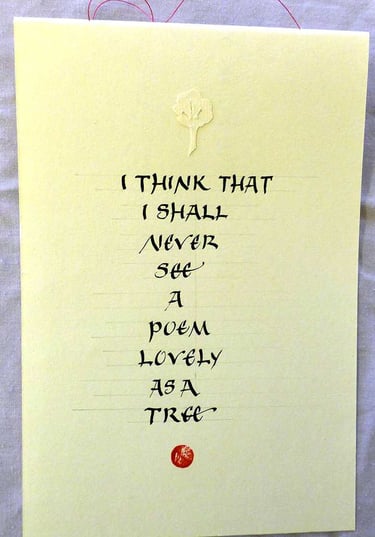 I THINK THAT
I SHALL
NEVER
SEE
A
POEM
LOVELY
AS A
TREE